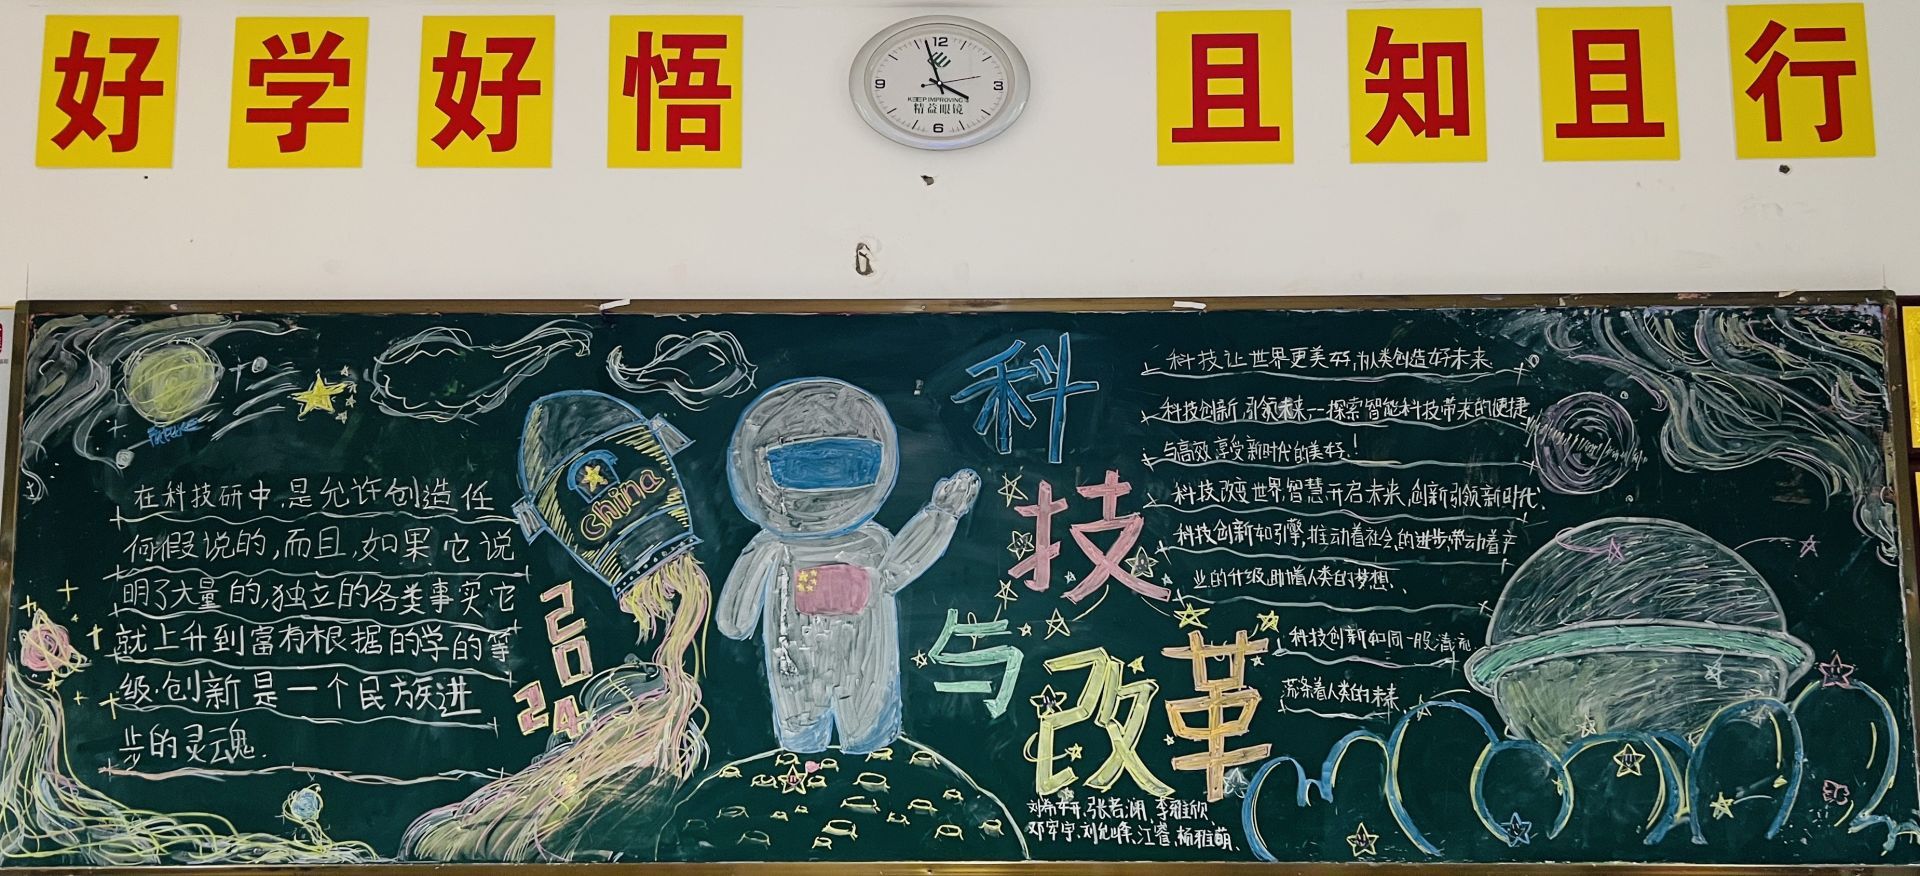 好学好悟
且知且行
12
3
6
9
KEEP IMPROVING
精益眼镜
Future
在科技研中,是允许创造任
何假说的,而且,如果它说
明了大量的,独立的各类事实,它
就上升到富有根据的学的等
级.创新是一个民族进
步的灵魂.
china
2024
科技与改革
科技让世界更美好,为人类创造好未来.
科技创新,引领未来—探索智能科技带来的便捷
与高效,享受新时代的美好!
科技改变世界,智慧开启未来,创新引领新时代.
科技创新如引擎,推动着社会的进步,带动着产
业的升级,助惜人类的梦想.
科技创新如同一股清流
荡涤着人类的未来.
李雅欣
刘允峰、江睿、杨雅萌、